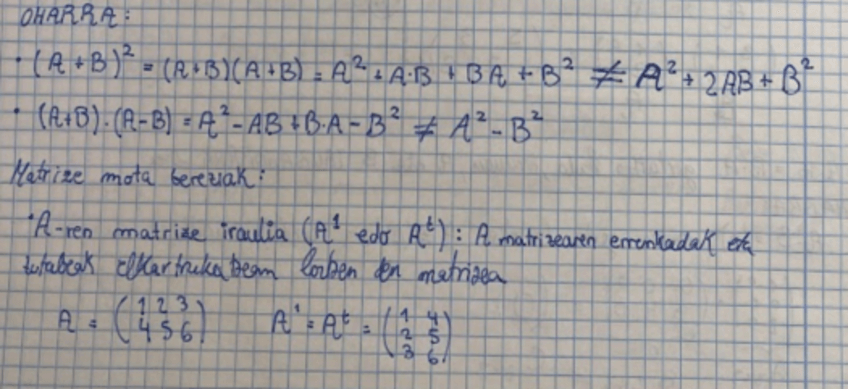 OHARRA:
· (A+B)² = (A+B)(A+B) = A² + A·B + BA + B² ≠ A² + 2AB + B²
· (A+B)·(A-B) = A² - AB + B·A - B² ≠ A² - B²
Matrize mota bereziak:
· A-ren matrize iraulia (A¹ edo Aᵗ): A matrizearen errenkadak eta
zutabeak elkartrukatzean lortzen den matrizea
A = (1 2 3 / 4 5 6) A' = Aᵗ = (1 4 / 2 5 / 3 6)